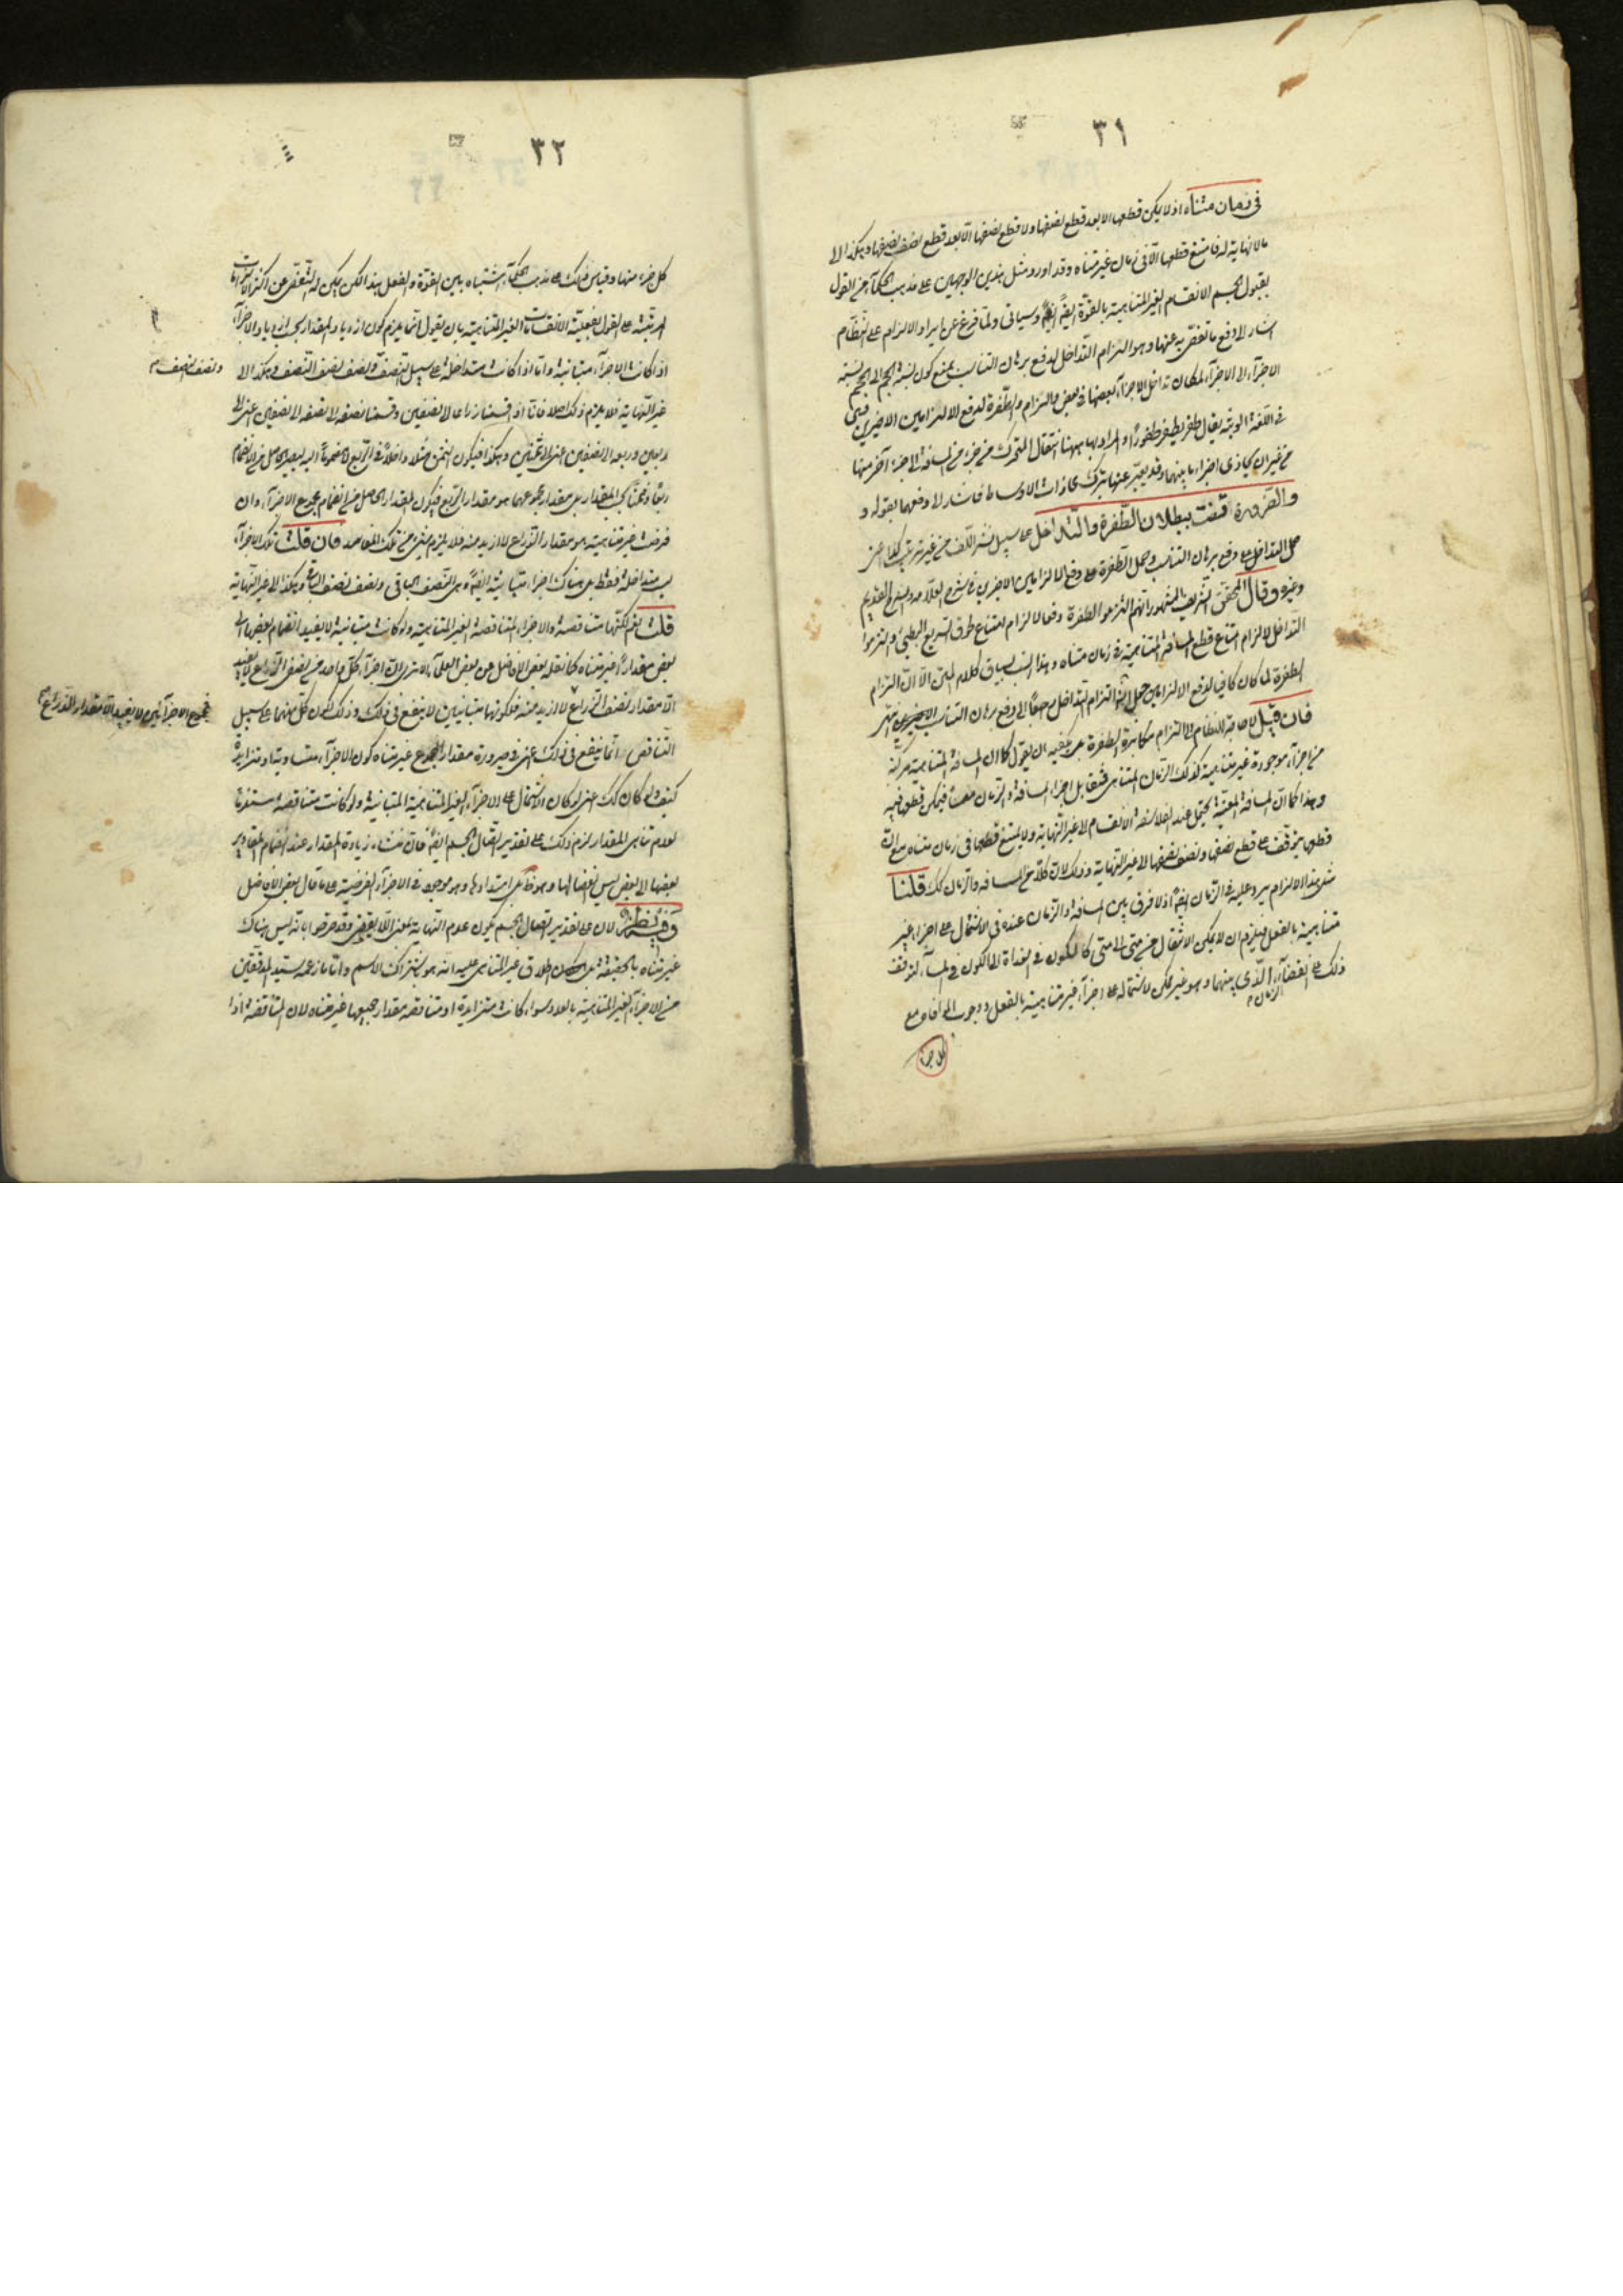 ٣١
في زمان متناه اذ لا يمكن قطعها الا بعد قطع نصفها ولا قطع نصفها الّا بعد قطع نصف نصفها وهكذا الى
ما لا نهاية له فامتنع قطعها الّا في زمان غير متناه وقد اورد مثل هذين الوجهين على مذهب الحكمآء من القول
بقبول الجسم الانقسام الغير المتناهية بالقوّة ايضًا وسياتى ولمّا فرغ عن ايراد الالزام على النظّام
اشار الى دفع ما تفصّى به عنها وهو التزام التداخل لدفع برهان التناسب بمنع كون نسبة الحجم الى الحجم نسبة
الاجزآء الى الاجزآء لمكان تداخل الاجزآء بعضها في بعض والتزام والطّفرة لدفع الالزامين الاخيرين فهي
في اللّغة الوثبة يقال طفر يطفر طفورًا والمراد بها ههنا انتقال المتحرك من جزء من المسافة الى جزء آخر منها
من غير ان يحاذى اجزاء ما بينهما وقد يعبّر عنها بترك محاذات الاوساط فاشار الى دفعهما بقوله و
والضّرورة قضت ببطلان الطّفرة والتّداخل على سبيل نشر اللّف من غير ترتيب
حمل التداخل على دفع برهان التناسب وحمل الطّفرة على دفع الالزامين الاخيرين في شرح العلّامه والشرح القديم
وغيره وقال المحقق الشريف المشهور انهم التزموا الطفرة دفعا لالزام امتناع لحوق السّريع البطئ والتزموا
التداخل لالزام امتناع قطع المسافة المتناهية في زمان متناه وهذا انسب بسياق كلام المتن الّا انّ التزام
الطفرة لما كان كافيا لدفع الالزامين حمل التزام التداخل راجعًا الى دفع برهان التناسب
فان قيل لا حاجة للنظّام الى التزام مكابرة الطفرة بل يكفيه ان يقول كما ان المسافة المتناهية مركبّة
من اجزآء موجودة غير متناهية كذلك الزّمان المتناهى فتقابل اجزاء المسافة والزّمان معًا فيمكن قطعها فيه
وهذا كما انّ المسافة المعيّنة يحتمل عند الفلاسفة الانقسام الى غير النهاية ولا يمتنع قطعها في زمان متناه مع انّ
قطعها يتوقّف على قطع نصفها ونصف نصفها الى غير النهاية وذلك لان كلّا من المسافه والزّمان كذلك قلنا
مثل هذا الالزام يرد عليه في الزّمان ايضًا اذ لا فرق بين المسافة والزمان عنده في الاشتمال على اجزاء غير
متناهية بالفعل فيلزم ان لا يمكن الانتقال من متى الى متى كالكون في الغداة الى الكون في المسآء لتوقف
ذلك على انقضآء الزمان الّذى بينهما وهو غير ممكن لاشتماله على اجزآء غير متناهية بالفعل
كل جزء
٣٢
كل جزء منها وقياس ذلك على مذهب الحكمآء اشتباه بين القوّة والفعل هذا لكن يمكن له التّفصّى عن اكثر الالزامات
المرتبة على القول بفعليّة الانقسامات الغير المتناهية بان يقول انّما يلزم كون ازدياد المقدار بحسب ازدياد الاجزآء
اذا كانت الاجزآء متباينة وامّا اذا كانت متداخلة على سبيل التنصّف ونصف نصف النّصف وهكذا الى
ونصف النصف
غير النّهاية فلا يلزم ذلك اصلا فانّا اذا قسمنا ذراعا الى نصفين وقسمنا نصفه الى نصفين اعنى الى
ربعين وربعه الى نصفين اعنى الى ثمنين وهكذا فيكون الثمن مثلا داخلًا في الرّبع
فرضت غير متناهية هو مقدار الذّراع لا ازيد منه فلا يلزم شئ من تلك المفاسد فان قلت تلك الاجزآء
ليست متداخلة فقط بل هناك اجزاء متباينة ايضًا وهى النّصف الباقى ونصف نصف الباقى وهكذا الى غير النّهاية
قلت نعم لكنّها متناقصة والاجزاء المتناقصة الغير المتناهية ولو كانت متباينة لا يفيد انضمام بعضها الى
بعض مقدارًا غير متناه كما نقله بعض الافاضل عن بعض العلمآء الا ترى انّ اجزآء كلّ واحد من نصفى الذّراع لا يفيد
فمجموع الاجزآئين لا يفيد الّا مقدار الذّراع
الّا مقدار نصف الذّراع لا ازيد منه فكونهما متباينين لا ينفع في ذلك وذلك لكون كلّ منهما على سبيل
التّناقص انّما ينفع في ذلك اعنى في صيرورة مقدار المجموع غير متناه كون الاجزآء متساوية او متزايدة
كيف ولو كان كذلك اعنى لو كان الاشتمال على الاجزآء الغير المتناهية المتباينة ولو كانت متناقصة مستلزمًا
لعدم تناهى المقدار لزم ذلك على تقدير اتّصال الجسم ايضًا فانّ منشاء زيادة المقدار عند انضمام المقادير
بعضها الى بعض ليس انفصالها وهو ظ بل امتدادها وهو موجود في الاجزآء الفرضيّة على ما قال بعض الافاضل
وفيه نظر لان على تقدير اتصال الجسم يكون عدم النهاية بمعنى اللّايقفى وقد صرّحوا بانّه ليس هناك
غير متناه بالحقيقة بل كان اطلاق غير المتناهى عليه انّه هو باشتراك الاسم وامّا ما زعمه سيّد المدققين
من الاجزآء الغير المتناهية بالعدد سواء كانت متزايدة او متناقصة مقدار جميعها غير متناه لان المتناقصة اذا